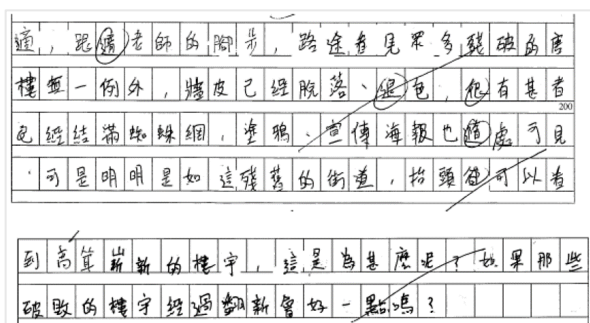 適，跟隨老師的腳步，路途看見眾多殘破的唐
樓無一例外，牆皮已經脫落、褪色，很有甚者
200
已經結滿蜘蛛網，塗鴉、宣傳海報也隨處可見
，可是明明是如這殘舊的街道，抬頭卻可以看
到高聳嶄新的樓宇，這是為甚麼呢？如果那些
破敗的樓宇經過翻新會好一點嗎？